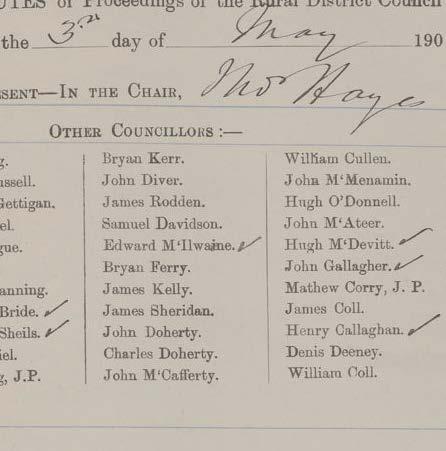 UTES of Proceedings of the Rural District Council
the 3rd day of May 190
ESENT—IN THE CHAIR, Thos Hayes
OTHER COUNCILLORS :—
g.
ussell.
Gettigan.
el.
gue.
anning.
Bride. ✓
Sheils. ✓
iel.
g, J.P.
Bryan Kerr.
John Diver.
James Rodden.
Samuel Davidson.
Edward M‘Ilwaine. ✓
Bryan Ferry.
James Kelly.
James Sheridan.
John Doherty.
Charles Doherty.
John M‘Cafferty.
William Cullen.
John M‘Menamin.
Hugh O'Donnell.
John M‘Ateer.
Hugh M‘Devitt. ✓
John Gallagher. ✓
Mathew Corry, J. P.
James Coll.
Henry Callaghan. ✓
Denis Deeney.
William Coll.